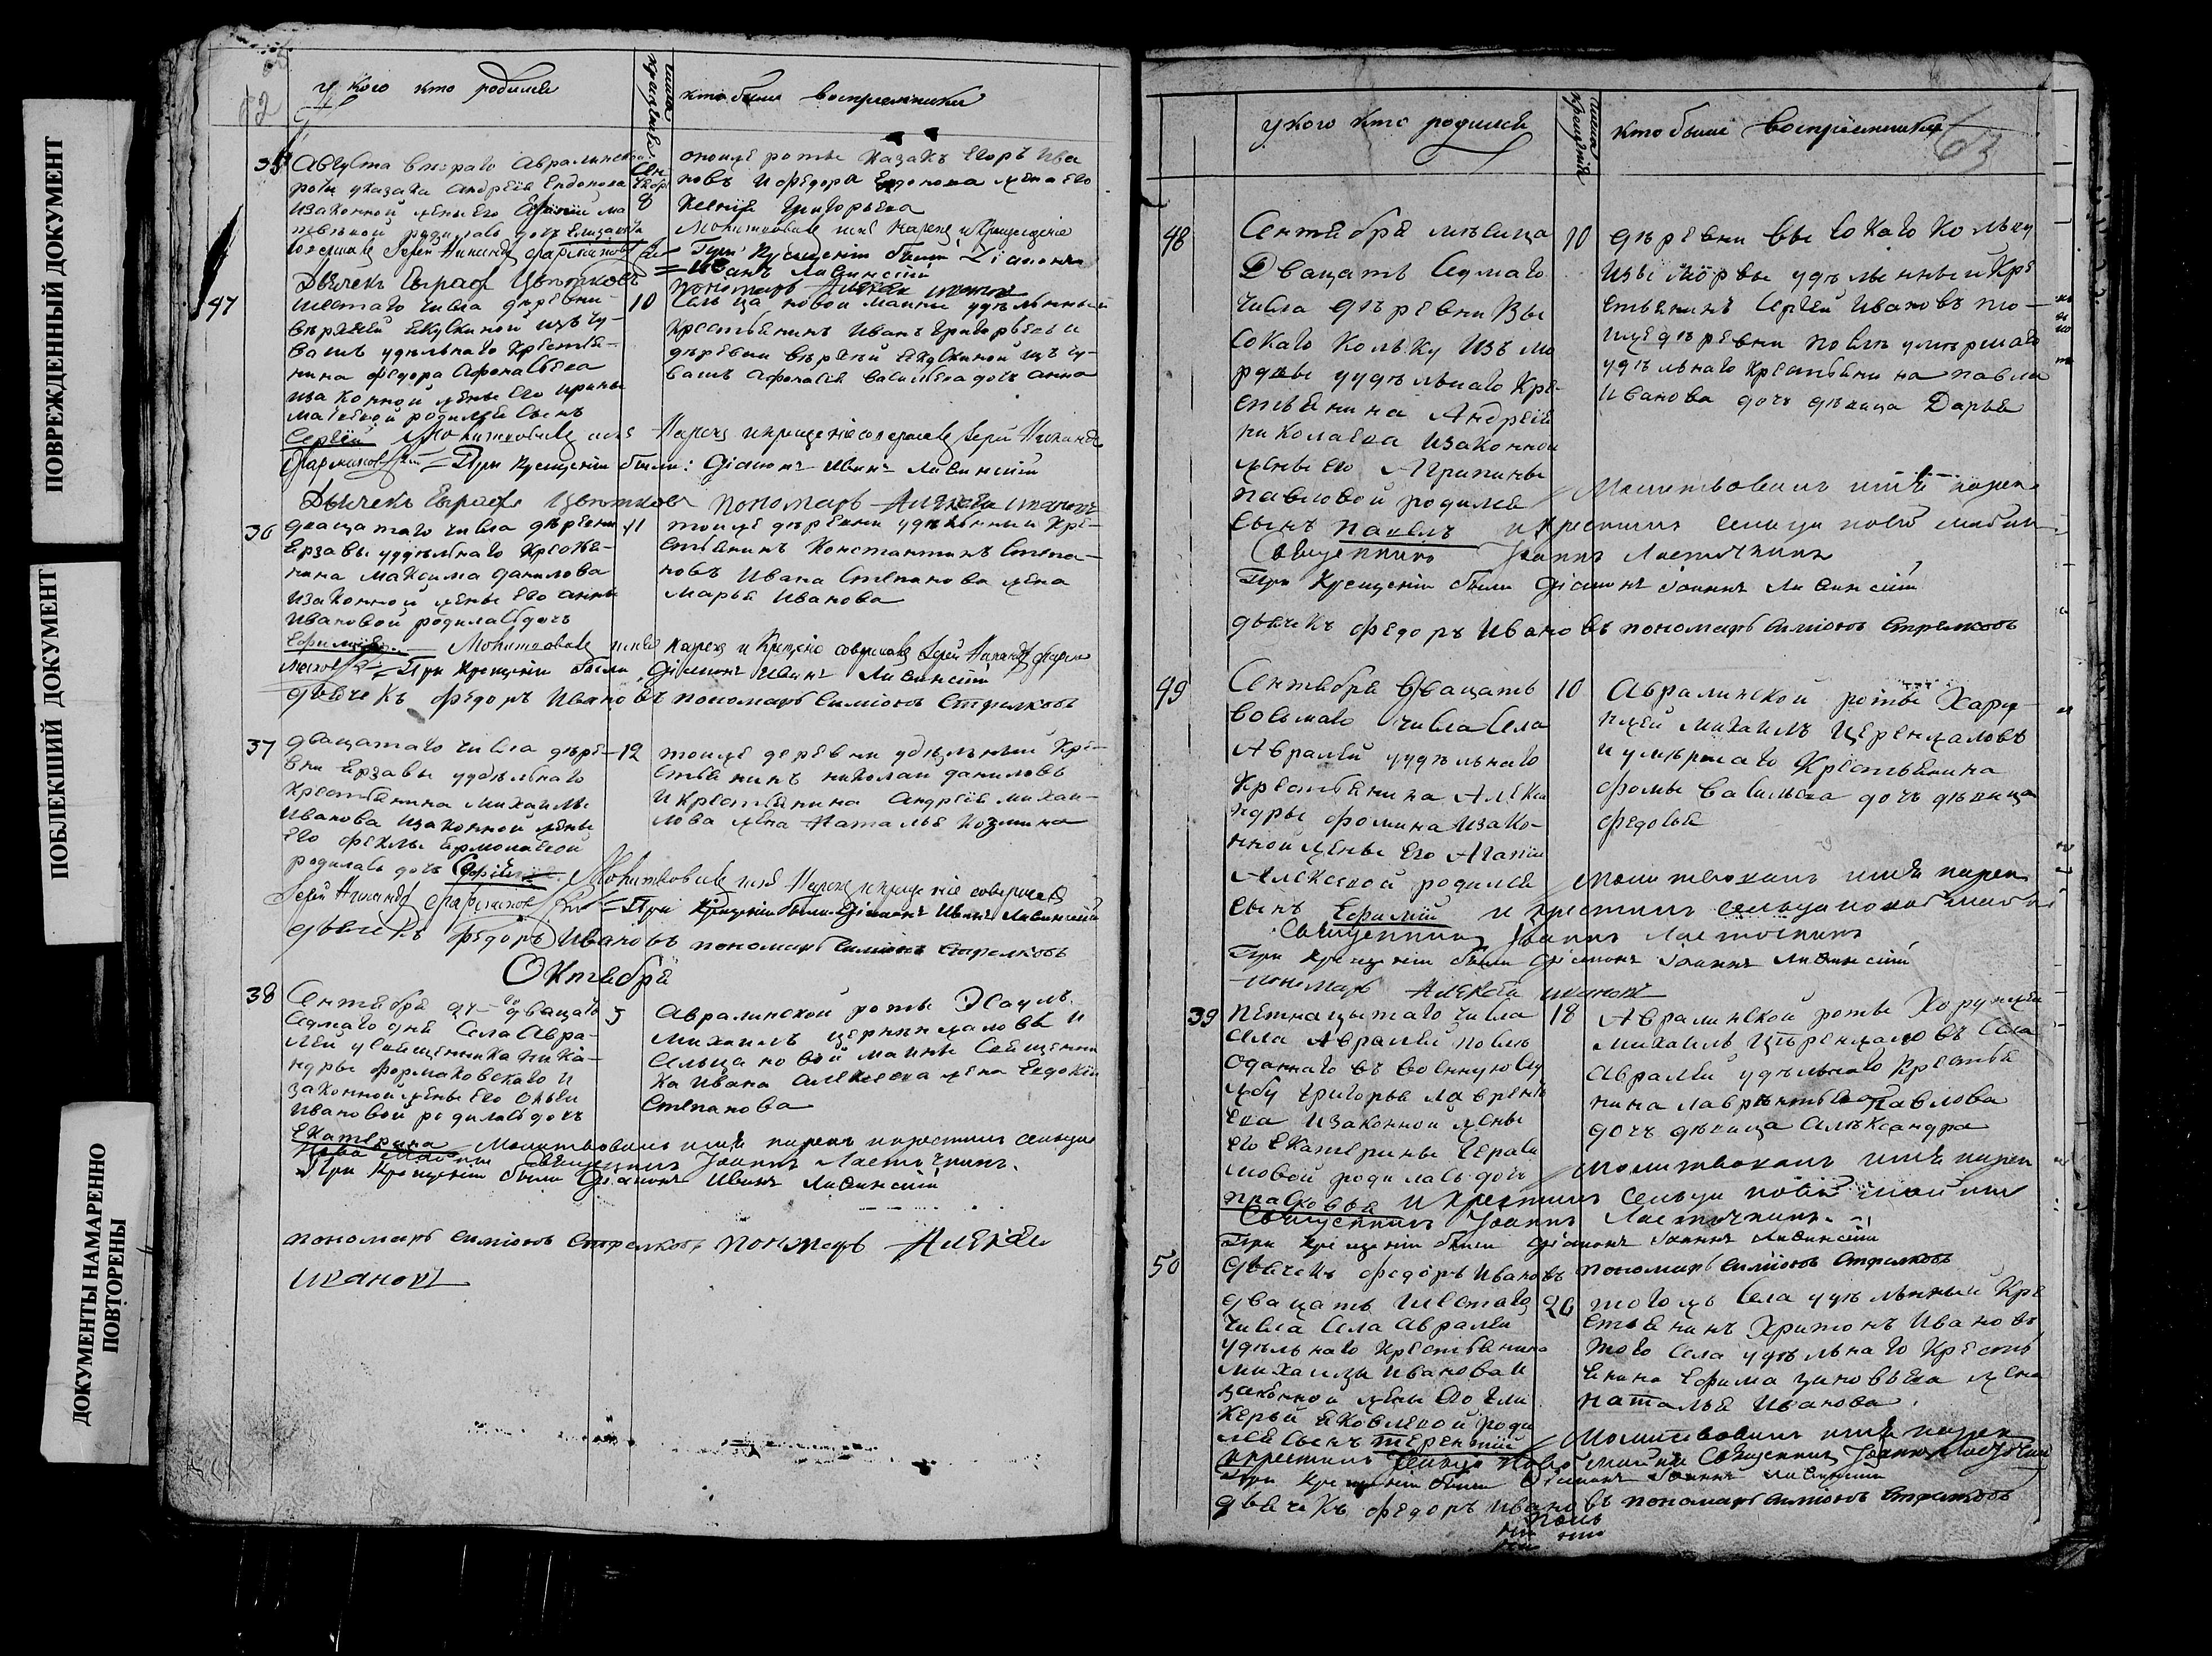 ПОВРЕЖДЕННЫЙ ДОКУМЕНТ
ПОБЛЕКШИЙ ДОКУМЕНТ
ДОКУМЕНТЫ НАМАРЕННО
ПОВТОРЕНЫ
62
у кого кто родился
число крещенія
кто были воспріемники
35
Августа втораго Авралинской
роты у казака Андрея Евдокова
изаконной жены его
родилась дочь Елизавета
Сен
тябр
8
тоиже роты казакъ Егоръ Ива
новъ и Федора жена его
Ксенія Григорьева
Молитвовалъ имя нарекъ и крещеніе
совершилъ Іерей Никандръ
При крещеніи были Діаконъ
Иванъ Ливинскій
Дьячекъ Евграфъ Цветковъ
пономарь Алексеи Ивановъ
47
шестаго числа деревни
верхней Екушкиной изъ чу-
вашъ удельнаго крестья-
нина Федора Афонасьева
изаконной жены его ирины
матвевой родился сынъ
Сергей
10
Сельца новой маины удельный
крестьянинъ Иванъ Григорьевъ и
деревни верхней екушкиной изъ чу-
вашъ Афонасея Васильева дочь анна
Молитвовалъ имя Нарекъ и крещеніе совершилъ Іерей Никандръ
При крещеніи были: Діаконъ Иванъ Ливинскій
Дьячекъ Евграфъ Цветковъ пономарь Алексеи Ивановъ
36
дватцатаго числа деревни
Ерзавы у удельнаго крестья-
нина Максима данилова
изаконной жены его анны
Ивановой родилась дочь
Ефимія
11
тоиже деревни удельный кре-
стьянинъ Константинъ Степа-
новъ Ивана Степанова жена
Марья Иванова
Молитвовалъ имя нарекъ и крещеніе совершилъ Іерей Никандръ
При крещеніи были Діаконъ Иванъ Ливинскій
дьячекъ федоръ Ивановъ пономарь Симіонъ Стрелковъ
37
дватцатаго числа дере-
вни Ерзавы у удельнаго
крестьянина Михаилы
Иванова изаконной жены
его феклы Ермолаевой
родилась дочь Софія
12
тоиже деревни удельный кре-
стьянинъ николаи даниловъ
и крестьянина Андрея михаи-
лова жена Наталья Козмина
Молитвовалъ имя Нарекъ и крещеніе совершилъ
Іерей Никандръ
При крещеніи были Діаконъ Иванъ Ливинскій
дьячекъ Федоръ Ивановъ пономарь Симіонъ Стрелковъ
Октября
38
Сентября 27-го дватцать
седмаго дня Села Авра-
лей у священника Ника-
ндры Формаковскаго и
законной жены его Ольги
Ивановой родилась дочь
Екатерина
5
Авралинской роты Эсаулъ
Михаилъ и
сельца новой маины священни
ка Ивана Алексеева жена Евдокія
Степанова
Молитвовалъ имя нарекъ и крестилъ сельца
Новой Маины Священникъ Іоаннъ Ласточкинъ.
При крещеніи были Діаконъ Иванъ Ливинскій
пономарь Симіонъ Стрелковъ пономарь Алексеи
Ивановъ
63
у кого кто родился
число крещенія
кто были воспріемники
48
Сентября месяца
Двацать Седмаго
числа деревни Вы
сокаго Кольку изъ мо
рдвы у удельнаго кре-
стьянина Андрея
николаева изаконной
жены его Агрипины
павловой родился
сынъ Павелъ
10
деревни высокаго Кольку
изъ морвы удельный кре
стьянинъ Сергей Ивановъ то-
иже деревни после умершаго
удельнаго крестьянина павла
Иванова дочь девица Дарья
Молитвовалъ имя нарекъ
и крестилъ сельца новой маины
Священникъ Іоаннъ Ласточкинъ
При крещеніи были діаконъ Іоаннъ Ливинскій
дьячекъ федоръ Ивановъ пономарь Симіонъ Стрелковъ
49
Сентября двацать
восьмаго числа Села
Авралей у удельнаго
крестьянина Алекса
ндры фомина изако-
нной жены его Агапіи
Алексевой родился
сынъ Ефимій
10
Авралинской роты Хору-
нжей михаилъ Церенжаловъ
и умершаго крестьянина
фомы Васильева дочь девица
федосья
Молитвовалъ имя нарекъ
и крестилъ сельца новой маины
Священникъ Іоаннъ Ласточкинъ
При крещеніи были діаконъ Іоаннъ Ливинскій
пономарь Алексеи Ивановъ
39
пятнацытаго числа
села Авралей после
оданнаго въ военную слу
жбу григорья лаврентье
ева изаконной жены
его Екатерины Гераси
мовой родилась дочь
прасковья
18
Авралинской роты Хорунжей
михаилъ Церенжаловъ села
Авралей удельнаго крестья
нина лаврентья Павлова
дочь девица Александра
Молитвовалъ имя нарекъ
и крестилъ сельца новой маины
Священникъ Іоаннъ Ласточкинъ.
При крещеніи были діаконъ Іоаннъ Ливинскій
дьячекъ федоръ Ивановъ пономарь Симіонъ Стрелковъ
50
двацать шестаго
числа села Авралей
удельнаго крестьянина
михаилы Иванова и
законной жены его Гли
керьи Яковлевой роди
лся сынъ Терентій
26
тогожъ села удельный кре
стьянинъ Харитонъ Ивановъ
того села удельнаго кресть
янина Ефима Зиновьева жена
Наталья Иванова
Молитвовалъ имя нарекъ
и крестилъ сельца новой маины Священникъ Іоаннъ Ласточкинъ
При крещеніи были Діаконъ Іоаннъ Ливинскій
дьячекъ федоръ Ивановъ пономарь Симіонъ Стрелковъ